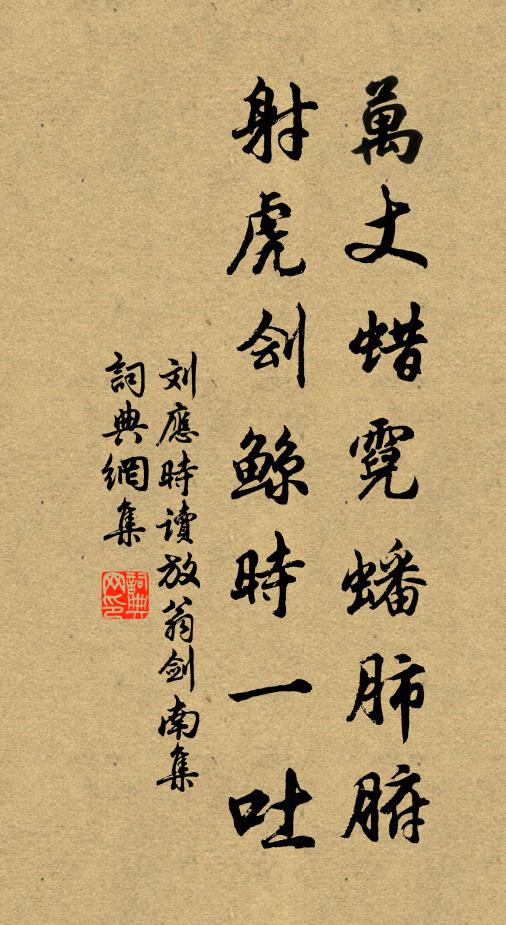 萬丈蜡霓蟠肺腑
射虎刽鲸時一吐
刘應時讀放翁剑南集
詞典網集
詞典网印